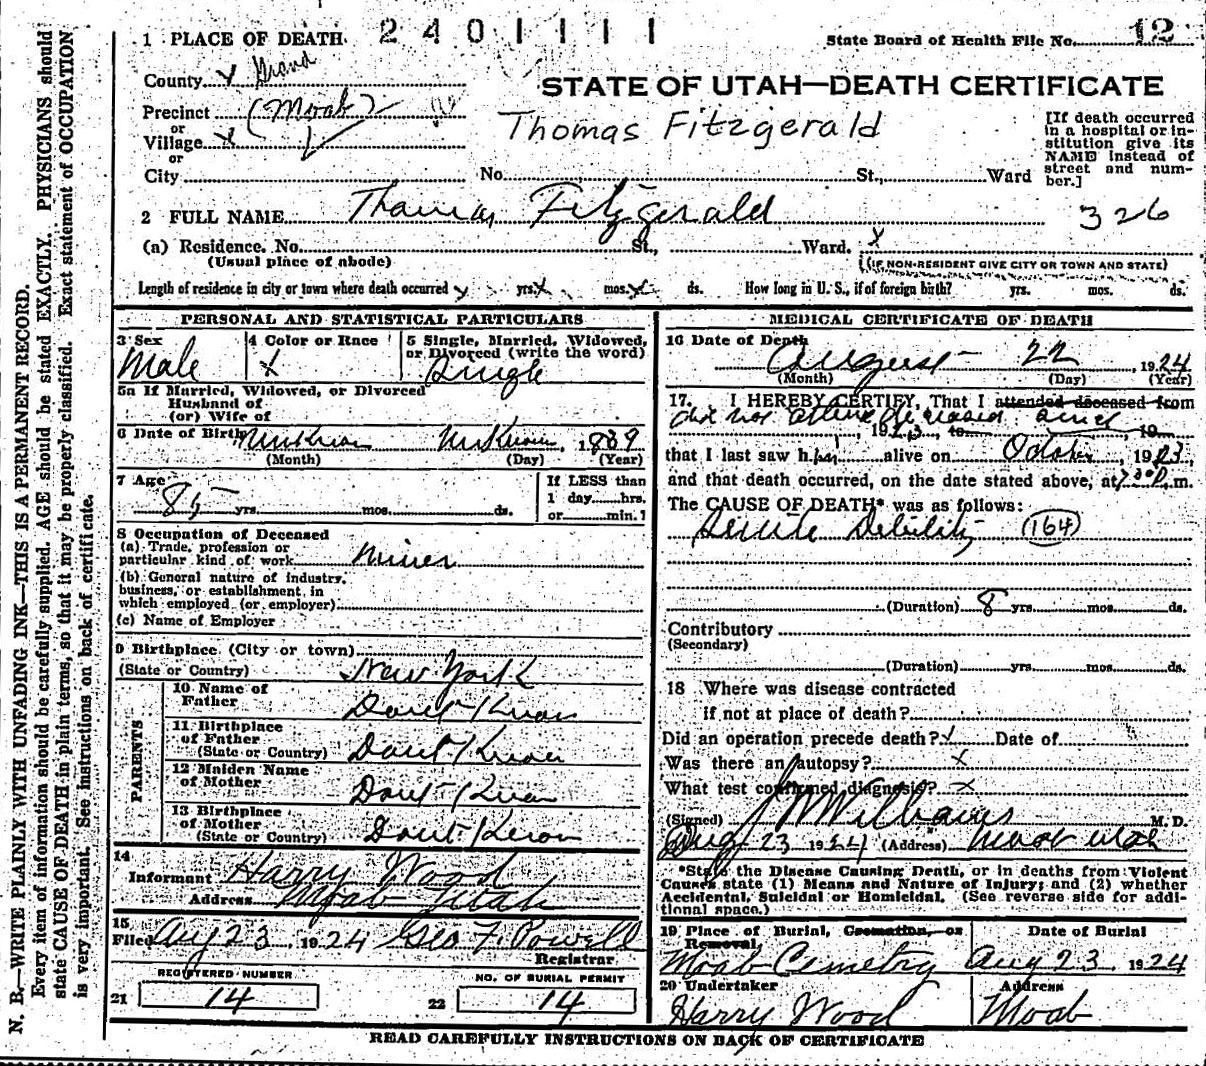 2401111
12
1 PLACE OF DEATH
State Board of Health File No.
County x Grand
STATE OF UTAH—DEATH CERTIFICATE
Precinct (Moab)
or
Village x
or
City No. St., Ward
Thomas Fitzgerald
[If death occurred
in a hospital or in-
stitution give its
NAME instead of
street and num-
ber.]
2 FULL NAME Thomas Fitzgerald
326
(a) Residence. No. St., Ward. x
(Usual place of abode)
(IF NON-RESIDENT GIVE CITY OR TOWN AND STATE)
Length of residence in city or town where death occurred x yrs. x mos. x ds. How long in U. S., if of foreign birth? yrs. mos. ds.
PERSONAL AND STATISTICAL PARTICULARS
3 Sex
Male
4 Color or Race
x
5 Single, Married, Widowed,
or Divorced (write the word)
Single
5a If Married, Widowed, or Divorced
Husband of
(or) Wife of
6 Date of Birth Unknown Unknown, 1839
(Month) (Day) (Year)
7 Age
85 yrs. mos. ds.
If LESS than
1 day hrs.
or min.?
8 Occupation of Deceased
(a) Trade, profession or
particular kind of work miner
(b) General nature of industry,
business, or establishment in
which employed (or employer)
(c) Name of Employer
9 Birthplace (City or town)
(State or Country) New York
PARENTS
10 Name of
Father Dont Know
11 Birthplace
of Father
(State or Country) Dont Know
12 Maiden Name
of Mother Dont Know
13 Birthplace
of Mother
(State or Country) Dont Know
14
Informant Harry Wood
Address Moab Utah
15
Filed Aug 23 1924 Geo F. Powell
Registrar
REGISTERED NUMBER
21 14
NO. OF BURIAL PERMIT
22 14
MEDICAL CERTIFICATE OF DEATH
16 Date of Death
August 22, 1924
(Month) (Day) (Year)
17. I HEREBY CERTIFY, That I attended deceased from
did not attend deceased since
, 1923, to , 19
that I last saw him alive on October, 1923,
and that death occurred, on the date stated above, at 7 30 P. m.
The CAUSE OF DEATH* was as follows:
Senile Debility (164)
(Duration) 8 yrs. mos. ds.
Contributory
(Secondary)
(Duration) yrs. mos. ds.
18 Where was disease contracted
if not at place of death?
Did an operation precede death? x Date of
Was there an autopsy? x
What test confirmed diagnosis? x
(Signed) J W Williams M. D.
Aug 23 1924 (Address) Moab Utah
*State the Disease Causing Death, or in deaths from Violent
Causes state (1) Means and Nature of Injury; and (2) whether
Accidental, Suicidal or Homicidal. (See reverse side for addi-
tional space.)
19 Place of Burial, Cremation, or
Removal
Moab Cemetry
Date of Burial
Aug 23 1924
20 Undertaker
Harry Wood
Address
Moab
READ CAREFULLY INSTRUCTIONS ON BACK OF CERTIFICATE
N. B.—WRITE PLAINLY WITH UNFADING INK—THIS IS A PERMANENT RECORD.
Every item of information should be carefully supplied. AGE should be stated EXACTLY. PHYSICIANS should
state CAUSE OF DEATH in plain terms, so that it may be properly classified. Exact statement of OCCUPATION
is very important. See instructions on back of certificate.